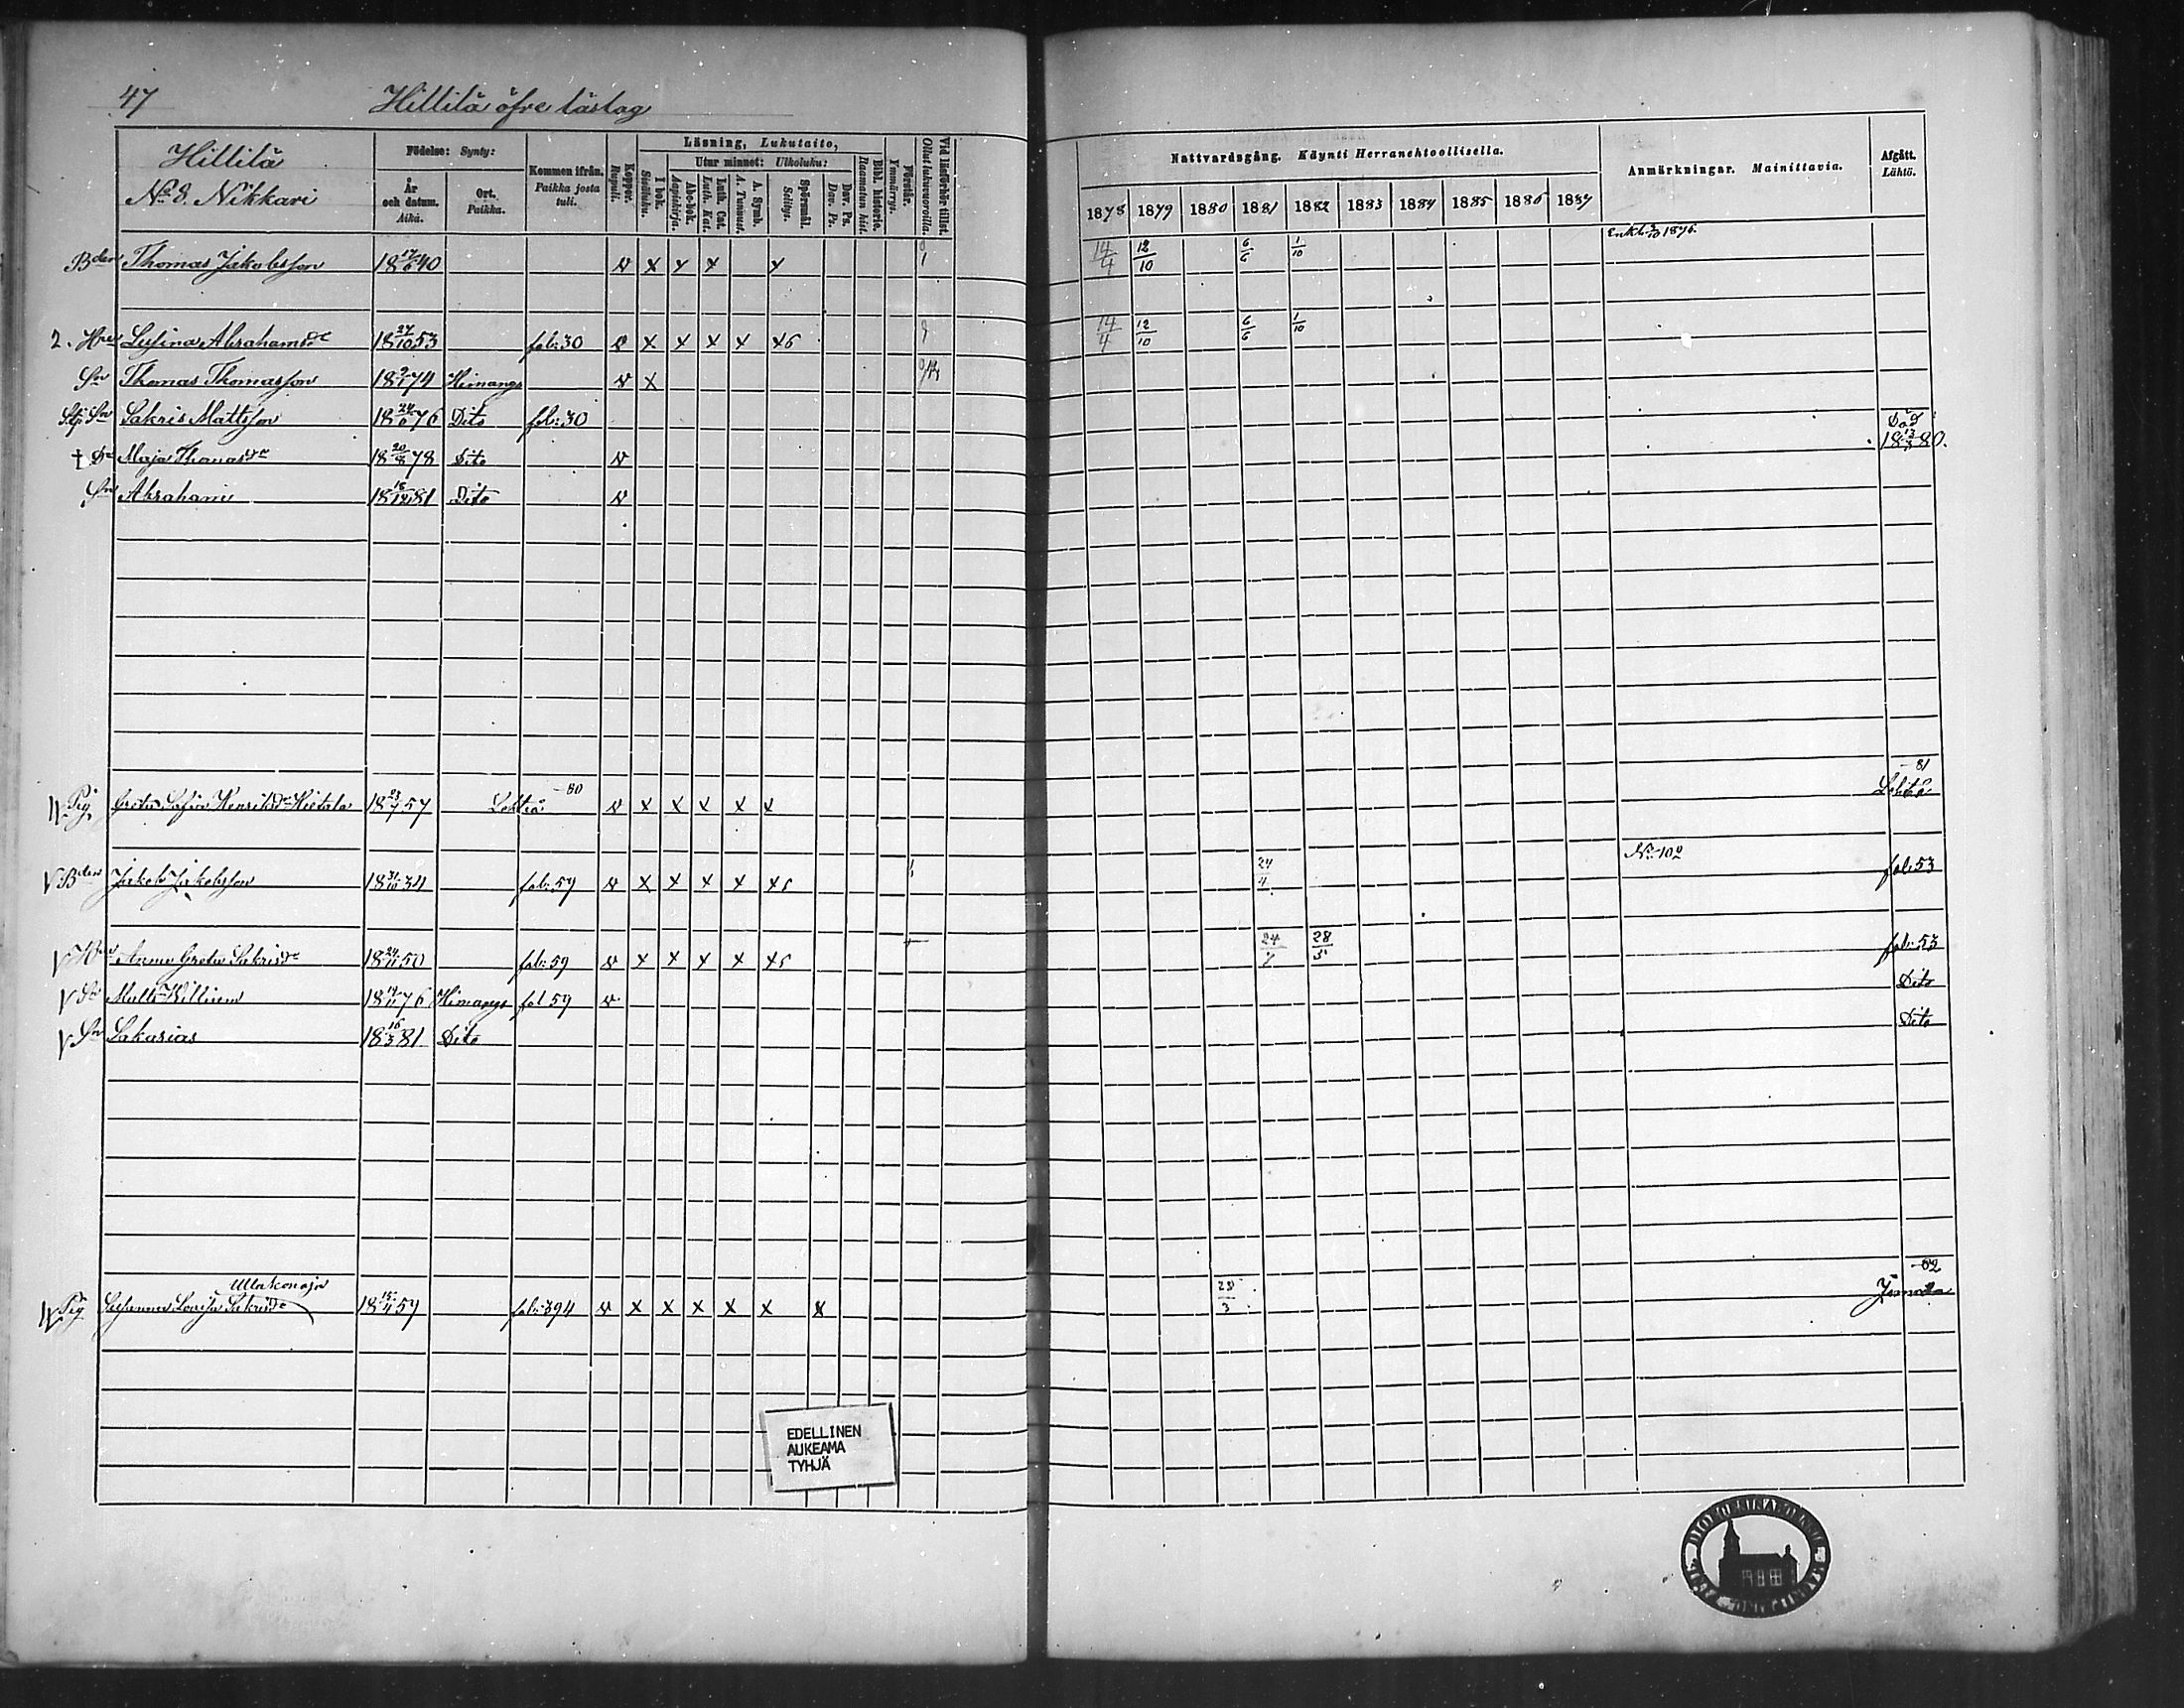 47 Hillilä öfre läslag
Hillilä
No 8. Nikkari
Födelse: Synty:
År och datum. Aikä.
Ort. Paikka.
Kommen ifrån. Paikka josta tuli.
Koppor. Rupuli.
Läsning, Lukutaito,
I bok. Sisäluku.
Utur minnet: Ulkoluku:
Abc-bok. Aapiskirja.
Luth. Cat. Luth. Kat.
A. Symb. A. Tunnust.
Spörsmål. Selitys.
Dav. Ps. Dav. Ps.
Bibl. historie. Raamatun hist.
Förstår. Ymmärrys.
Vid läsförhör tillst. Ollut lukuvuorolla.
Nattvardsgång. Käynti Herranehtoollisella.
1878 1879 1880 1881 1882 1883 1884 1885 1886 1887
Anmärkningar. Mainittavia.
Afgått. Lähtö.
Bden Thomas Jakobsson 18 17/6 40 v x x x x 1 14/4 12/10 6/6 1/10 Enkl. 1876.
2. Hru Lisina Abrahamsdr 18 27/10 53 fol: 30 v x x x x x5 14/4 12/10 6/6 1/10
Sn Thomas Thomasson 18 9/1 74 Himango v x
Sakris Mattsson 18 24/6 76 Dito fol: 30
† Dr Maja Thomasdr 18 20/8 78 Dito v Död 18 13/3 80.
Sn Abraham 18 18/12 81 Dito v
Pig. Greta Sofia Henriksdr Hietala 18 23/7 57 Lohteå -80 v x x x x x Lohteå -81
V Bden Jakob Jakobsson 18 31/10 34 fol: 59 v x x x x x5 24/4 No 102 fol: 53
V Anna Greta Sakrisdr 18 24/11 50 fol: 59 v x x x x x5 24/4 28/5 fol: 53
V Sn Matts William 18 14/11 76 Himango fol 59 v Dito
V Sn Sakarias 18 16/3 81 Dito Dito
Pig Susanna Lovisa Sakrisdr Ullakonoja 18 15/4 59 fol: 394 v x x x x x x 28/3 -82
EDELLINEN
AUKEAMA
TYHJÄ